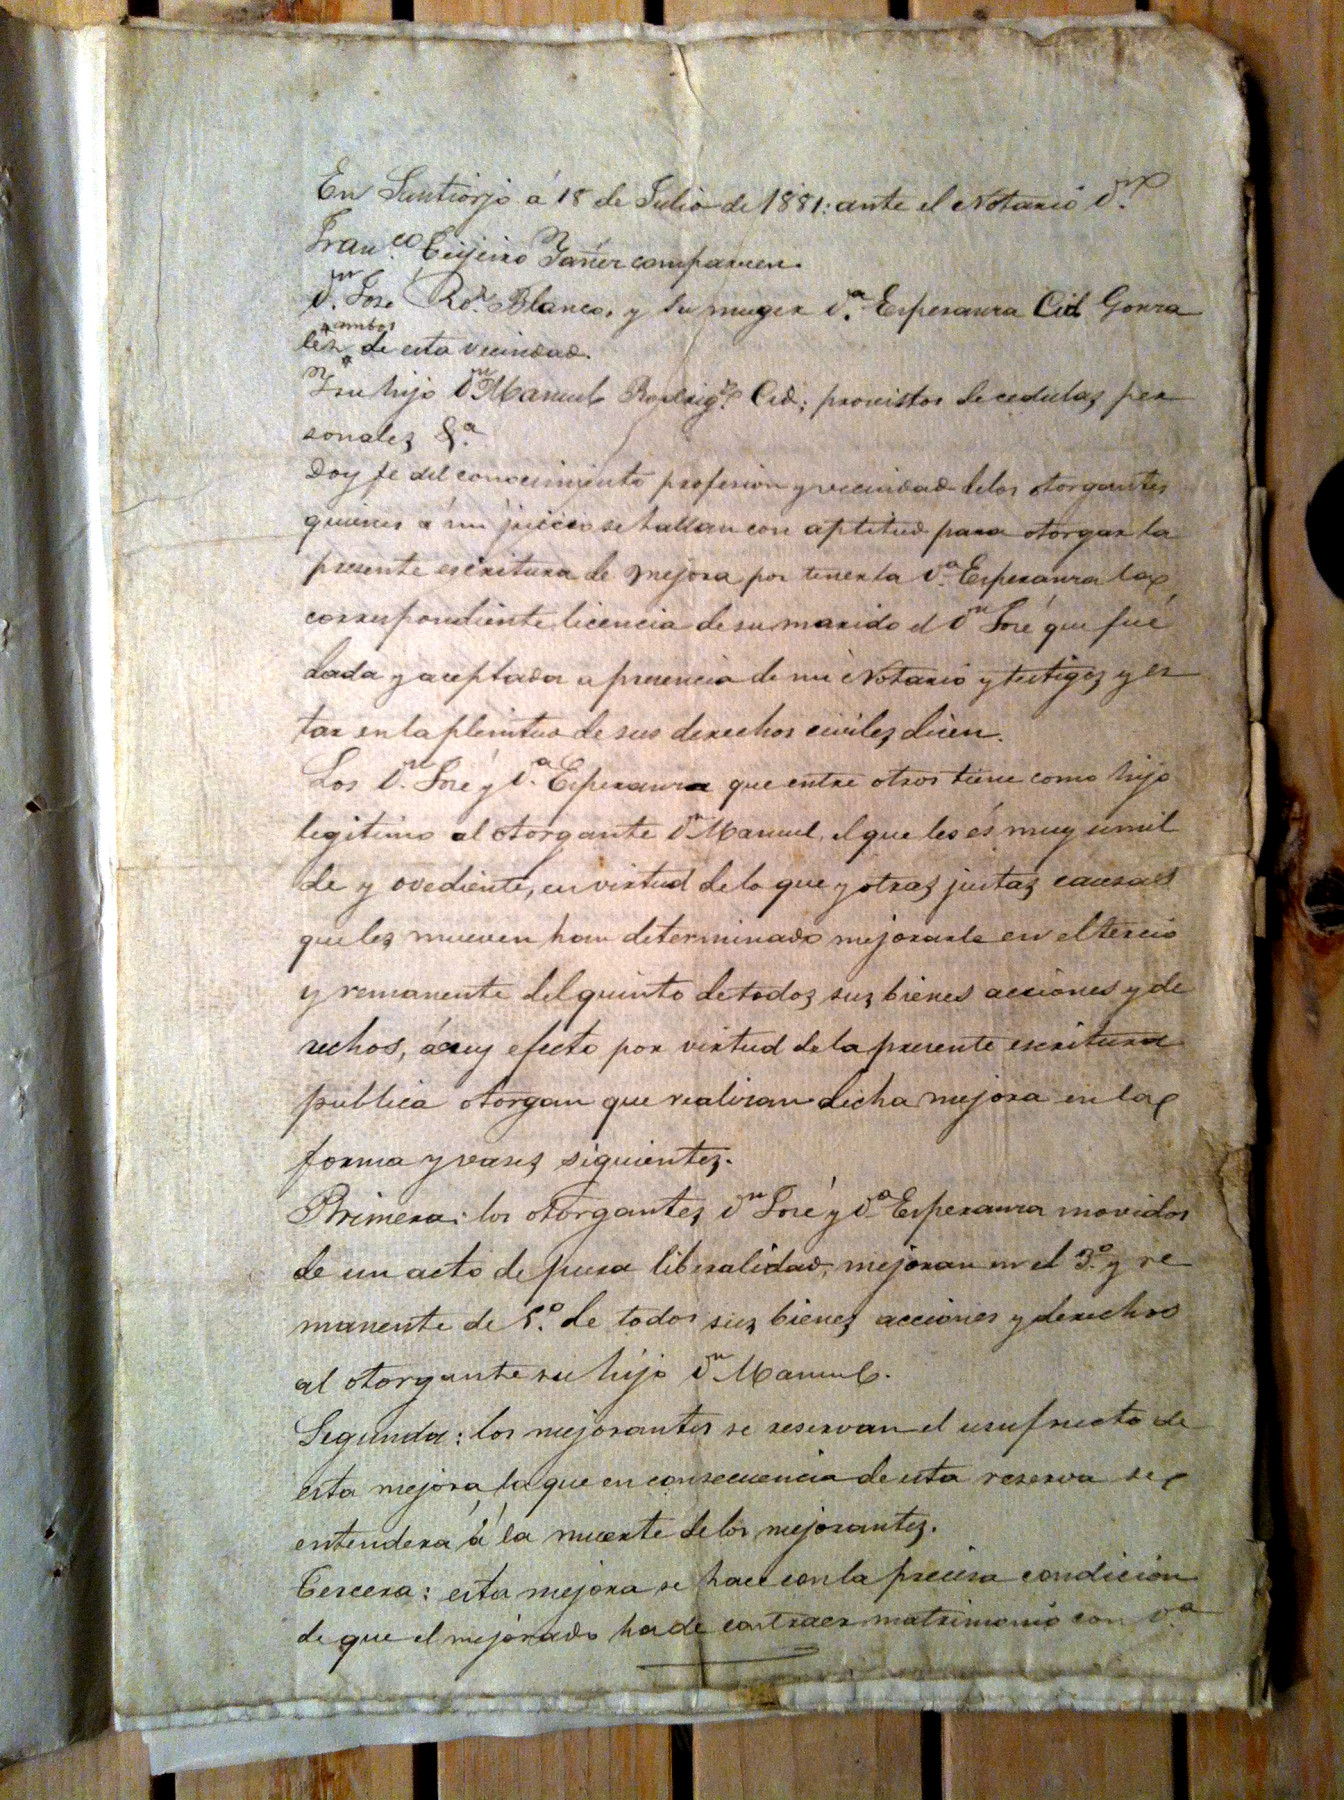 En Santiorjo á 18 de Julio de 1881: ante el Notario Dn
Franco. Teijeiro Yañez comparecen.
Dn. José Rodz. Blanco, y su muger Da. Esperanza Cid Gonza
lez ambos de esta vecindad.
Y su hijo Dn Manuel Rodrigz. Cid; provistos de cedulas per
sonales &a.
Doy fe del conocimiento profesion y vecindad delos otorgantes
quienes a mi juicio se hallan con aptitud para otorgar la
presente escritura de mejora por tener la Da. Esperanza la
correspondiente licencia de su marido el Dn José que fué
dada y aceptada a presencia de mi Notario y testigos y es
tar en la plenitud de sus derechos civiles, dicen.
Los Dn. José y Da. Esperanza que entre otros tiene como hijo
legitimo al otorgante Dn Manuel, el que les és muy umil
de y ovediente, en virtud de lo que y otras justas causas
que les mueven han determinado mejorarle en el tercio
y remanente del quinto de todos sus bienes acciones y de
rechos, ácuy efecto por virtud de la presente escritura
publica otorgan que realizan dicha mejora en la
forma y vases siguientes.
Primera: los otorgantes Dn José y Da Esperanza movidos
de un acto de pura liberalidad, mejoran en el 3o. y re
manente de 5o. de todos sus bienes acciones y derechos
al otorgante su hijo Dn Manuel.
Segunda: los mejorantes se reservan el usufructo de
esta mejora, la que en consecuencia de esta reserva se
entendera á la muerte de los mejorantes.
Tercera: esta mejora se hace con la precisa condición
de que el mejorado ha de contraer matrimonio con Da.